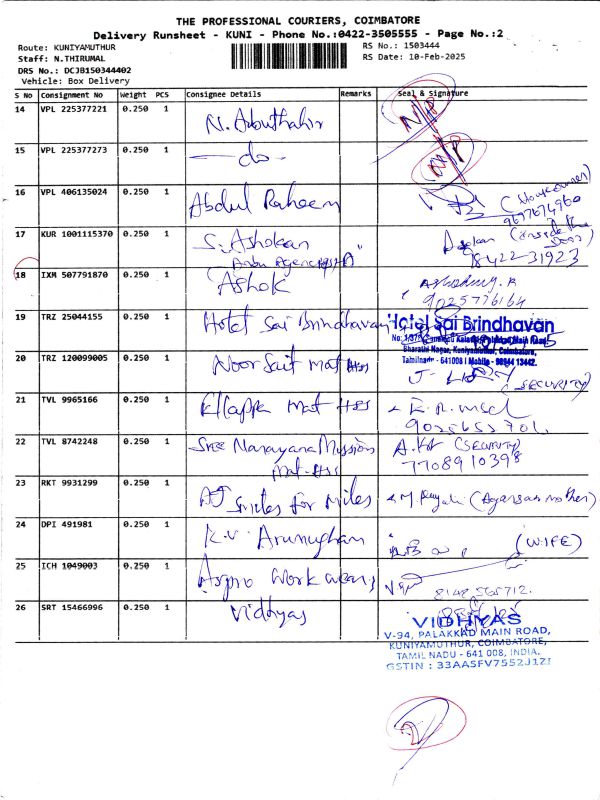 THE PROFESSIONAL COURIERS, COIMBATORE
Delivery Runsheet - KUNI - Phone No.:0422-3505555 - Page No.:2
Route: KUNIYAMUTHUR
RS No.: 1503444
Staff: N.THIRUMAL
RS Date: 10-Feb-2025
DRS No.: DCJB150344402
Vehicle: Box Delivery
S No Consignment No Weight PCS Consignee Details Remarks Seal & Signature
14 VPL 225377221 0.250 1 N. Abuthahir
15 VPL 225377273 0.250 1 - do -
16 VPL 406135024 0.250 1 Abdul Raheem
17 KUR 1001115370 0.250 1 S. Ashokan
98422-31923
18 IXM 507791870 0.250 1 Ashok
9025776164
19 TRZ 25044155 0.250 1 Hotel Sai Brindhavan Hotel Sai Brindhavan
Bharathi Nagar, Kuniyamuthur, Coimbatore,
Tamilnadu - 641008 | Mobile - 98944 13442.
20 TRZ 120099005 0.250 1 Noor Sait Mat Hss
(SECURITY)
21 TVL 9965166 0.250 1 Ellappa Mat HSS
22 TVL 8742248 0.250 1 Sree Narayana Mission
Mat. Hss
(SECURITY)
7708910398
23 RKT 9931299 0.250 1 AJ Smiles for Miles
24 DPI 491981 0.250 1 K.V. Arumugham (WIFE)
25 ICH 1049003 0.250 1 Aspro Work wears
8148 565712.
26 SRT 15466996 0.250 1 Vidhyas
VIDHYAS
V-94, PALAKKAD MAIN ROAD,
KUNIYAMUTHUR, COIMBATORE,
TAMIL NADU - 641 008, INDIA.
GSTIN : 33AASFV7552J1ZI